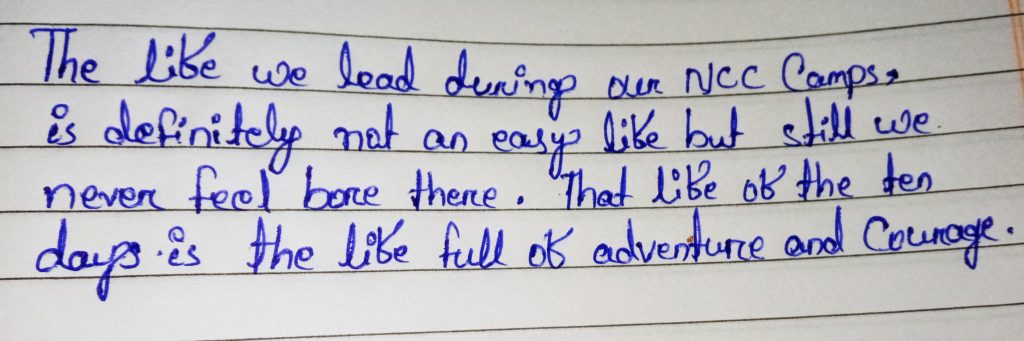 The life we lead during our NCC Camps,
is definitely not an easy life but still we
never feel bore there. That life of the ten
days is the life full of adventure and Courage.